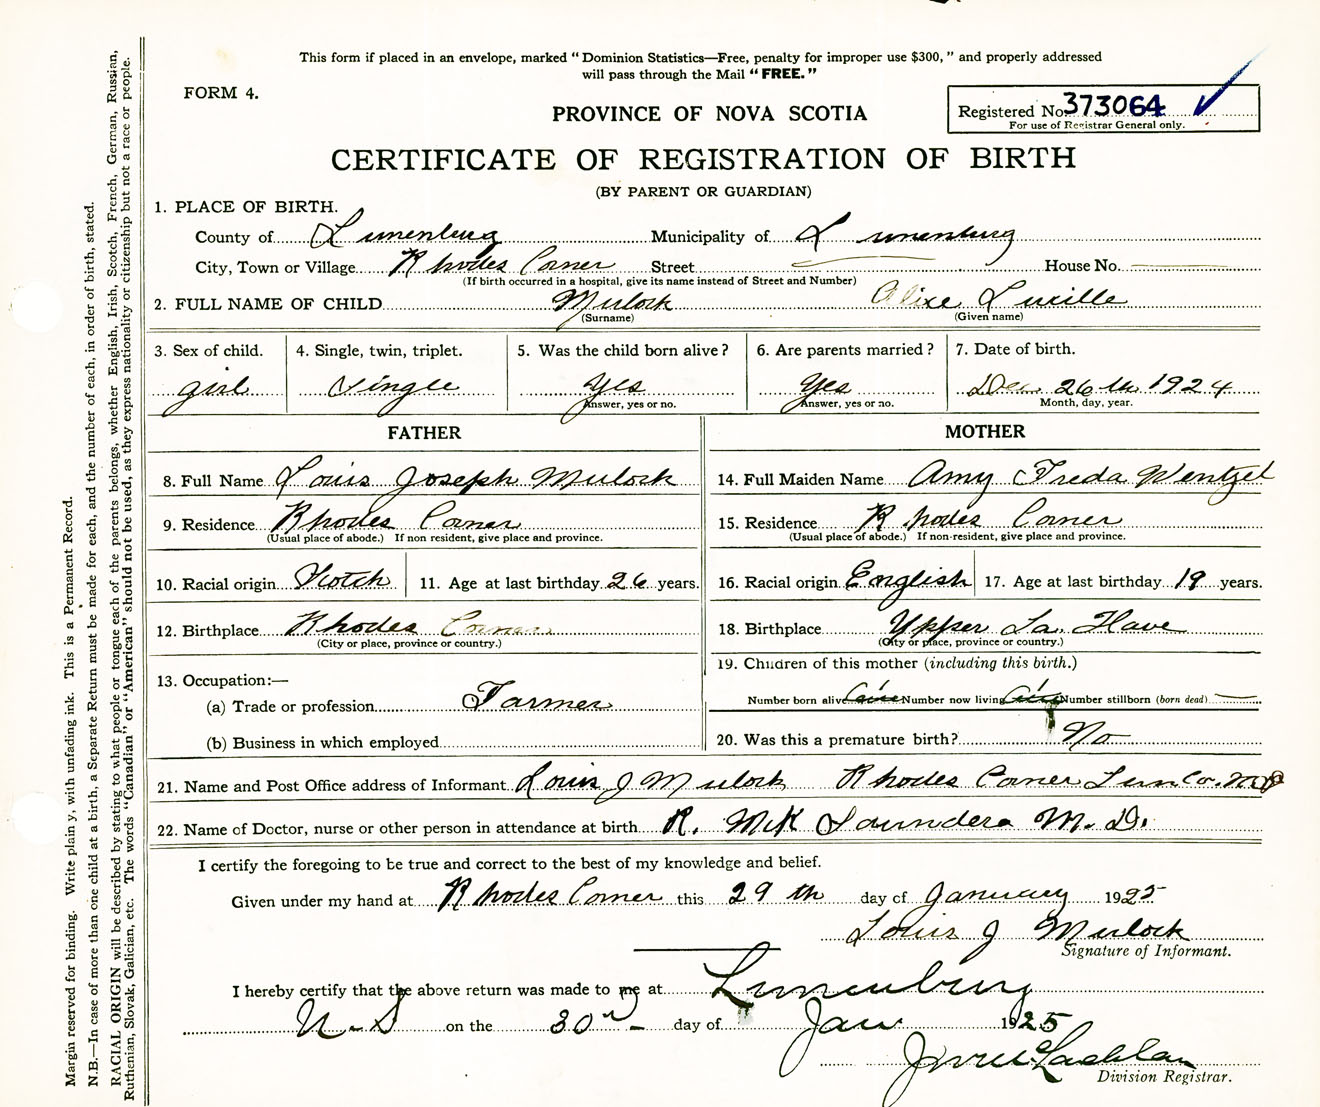 This form if placed in an envelope, marked "Dominion Statistics—Free, penalty for improper use $300," and properly addressed
will pass through the Mail "FREE."
FORM 4.
PROVINCE OF NOVA SCOTIA
Registered No. 373064
For use of Registrar General only.
CERTIFICATE OF REGISTRATION OF BIRTH
(BY PARENT OR GUARDIAN)
1. PLACE OF BIRTH.
County of Lunenburg Municipality of Lunenburg
City, Town or Village Rhodes Corner Street House No.
(If birth occurred in a hospital, give its name instead of Street and Number)
2. FULL NAME OF CHILD Mulock Alixe Lucille
(Surname) (Given name)
3. Sex of child. 4. Single, twin, triplet. 5. Was the child born alive? 6. Are parents married? 7. Date of birth.
girl Single Yes Yes Dec 26th 1924
Answer, yes or no. Answer, yes or no. Month, day, year.
FATHER
8. Full Name Louis Joseph Mulock
9. Residence Rhodes Corner
(Usual place of abode.) If non resident, give place and province.
10. Racial origin Scotch 11. Age at last birthday 26 years.
12. Birthplace Rhodes Corner
(City or place, province or country.)
13. Occupation:—
(a) Trade or profession Farmer
(b) Business in which employed
MOTHER
14. Full Maiden Name Amy Freda Wentzel
15. Residence Rhodes Corner
(Usual place of abode.) If non-resident, give place and province.
16. Racial origin English 17. Age at last birthday 19 years.
18. Birthplace Upper La Have
(City or place, province or country.)
19. Children of this mother (including this birth.)
Number born alive Number now living Number stillborn (born dead)
20. Was this a premature birth? No
21. Name and Post Office address of Informant Louis J Mulock Rhodes Corner Lun Co. N.S.
22. Name of Doctor, nurse or other person in attendance at birth R. McK Saunders M. D.
I certify the foregoing to be true and correct to the best of my knowledge and belief.
Given under my hand at Rhodes Corner this 29th day of January 1925
Louis J Mulock
Signature of Informant.
I hereby certify that the above return was made to me at Lunenburg
N-S on the 30 day of Jan 1925
McLachlan
Division Registrar.
Margin reserved for binding. Write plain y, with unfading ink. This is a Permanent Record.
N.B.—In case of more than one child at a birth, a Separate Return must be made for each, and the number of each, in order of birth, stated.
RACIAL ORIGIN will be described by stating to what people or tongue each of the parents belongs, whether English, Irish, Scotch, French, German, Russian,
Ruthenian, Slovak, Galician, etc. The words "Canadian" or "American" should not be used, as they express nationality or citizenship but not a race or people.